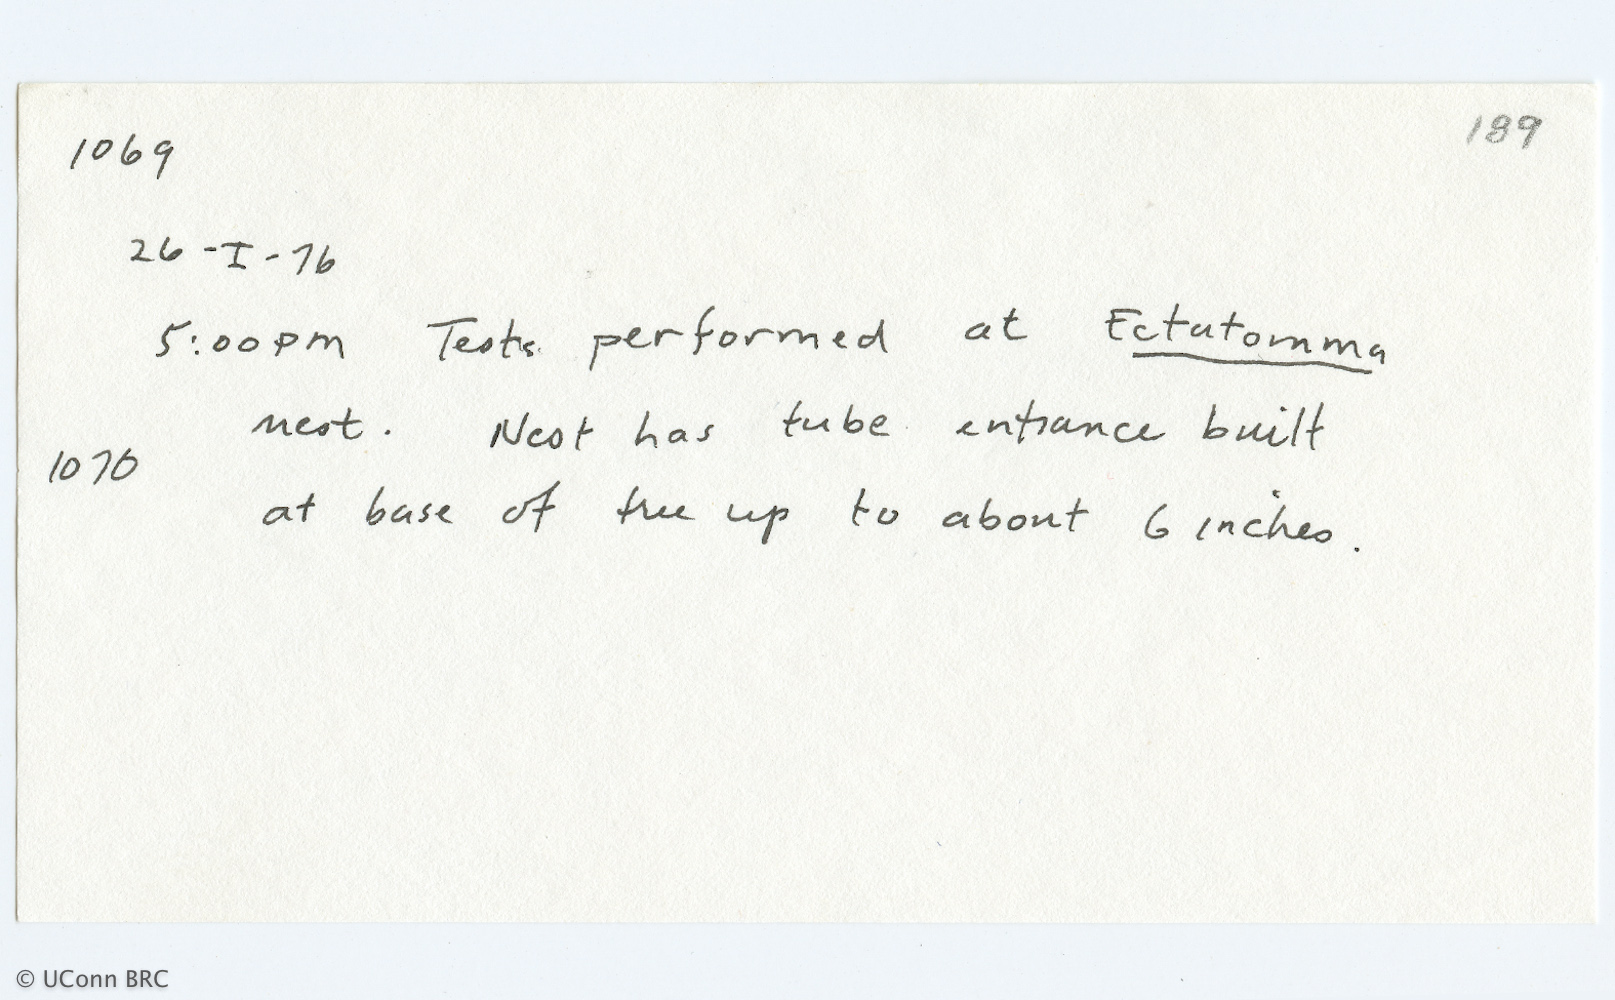 1069
189
26-I-76
5:00pm Tests performed at Ectatomma
nest. Nest has tube entrance built
1070
at base of tree up to about 6 inches.
© UConn BRC